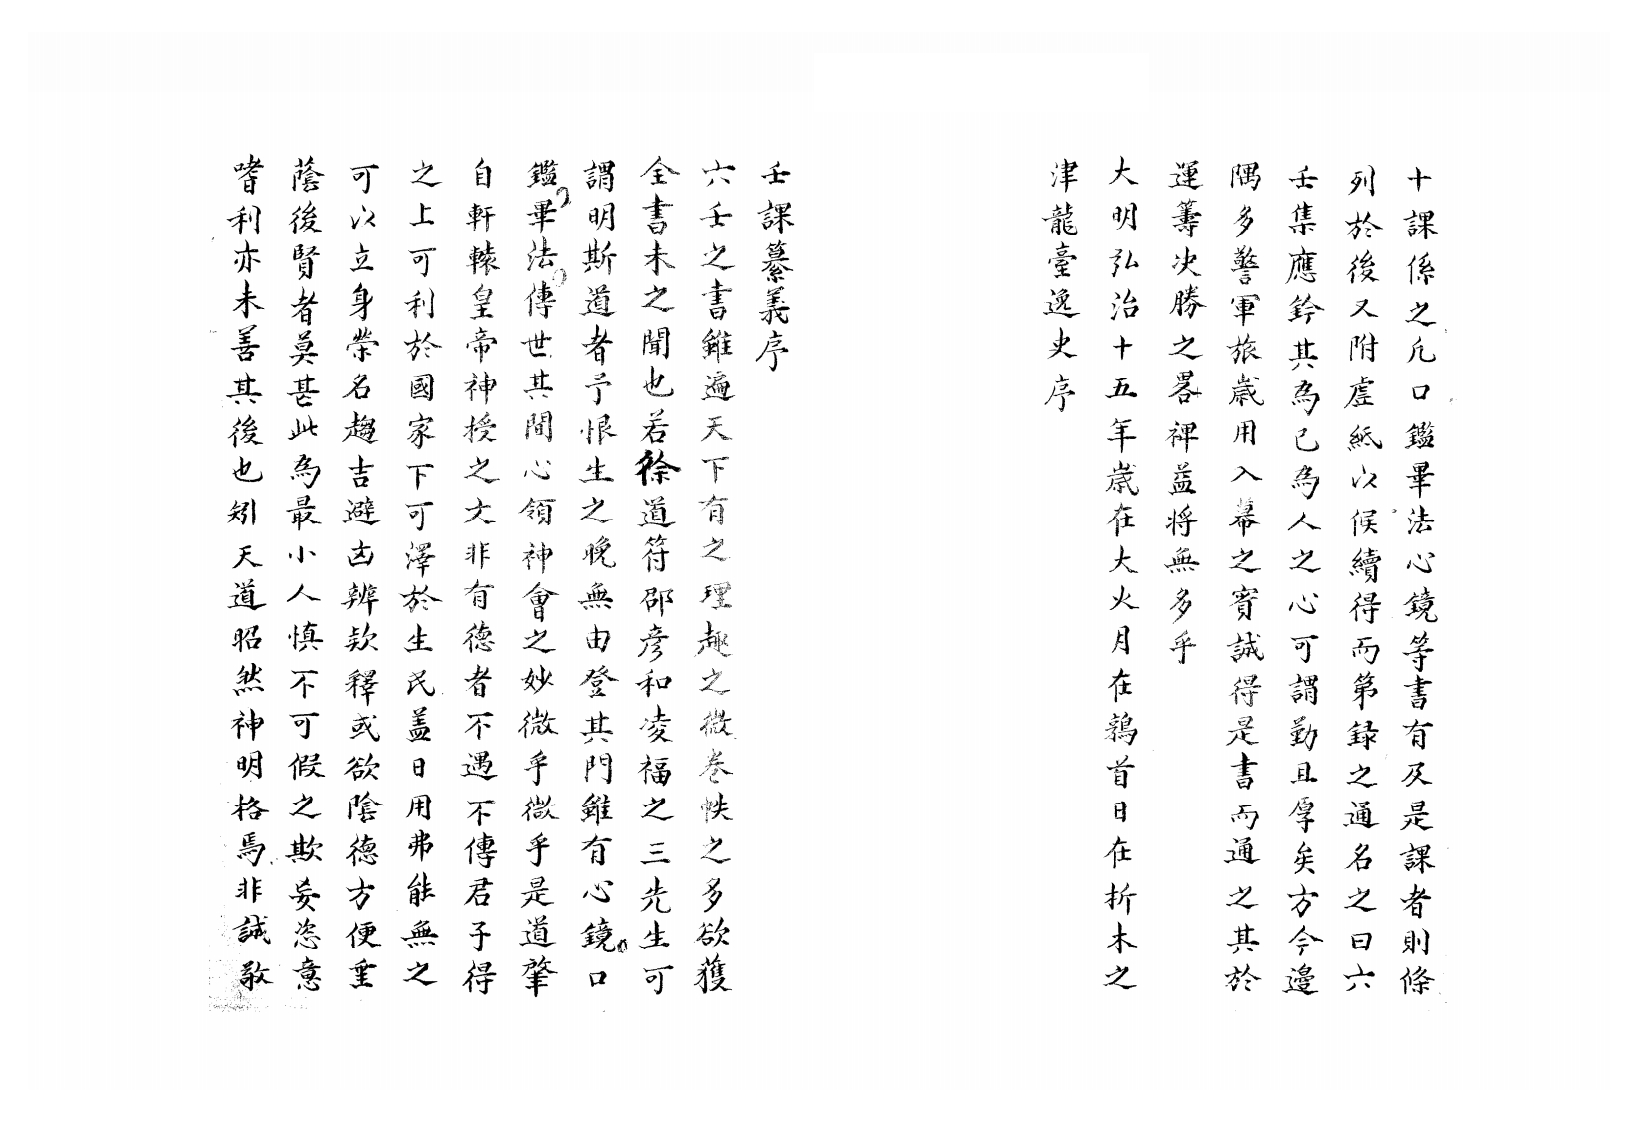 十課係之凢口鑑畢法心鏡等書有及是課者則條
列於後又附虗紙以候續得而第録之通名之曰六
壬集應鈐其為已為人之心可謂勤且厚矣方今邉
隅多警軍旅歳用入幕之賓誠得是書而通之其於
運籌决勝之畧裨益将無多乎
大明弘治十五年歳在大火月在鶉首日在折木之
津龍臺逸史序
壬課纂義序
六壬之書雖遍天下有之理趣之微巻帙之多欲獲
全書未之聞也若徐道符邵彦和凌福之三先生可
謂明斯道者予恨生之晚無由登其門雖有心鏡口
鑑畢法傳世其間心領神會之妙微乎微乎是道肇
自軒轅皇帝神授之文非有德者不遇不傳君子得
之上可利於國家下可澤於生民盖日用弗能無之
可以立身榮名趨吉避凶辨欵釋或欲陰德方便垂
蔭後賢者莫甚此為最小人慎不可假之欺妄恣意
嗜利亦未善其後也矧天道昭然神明格焉非誠敬